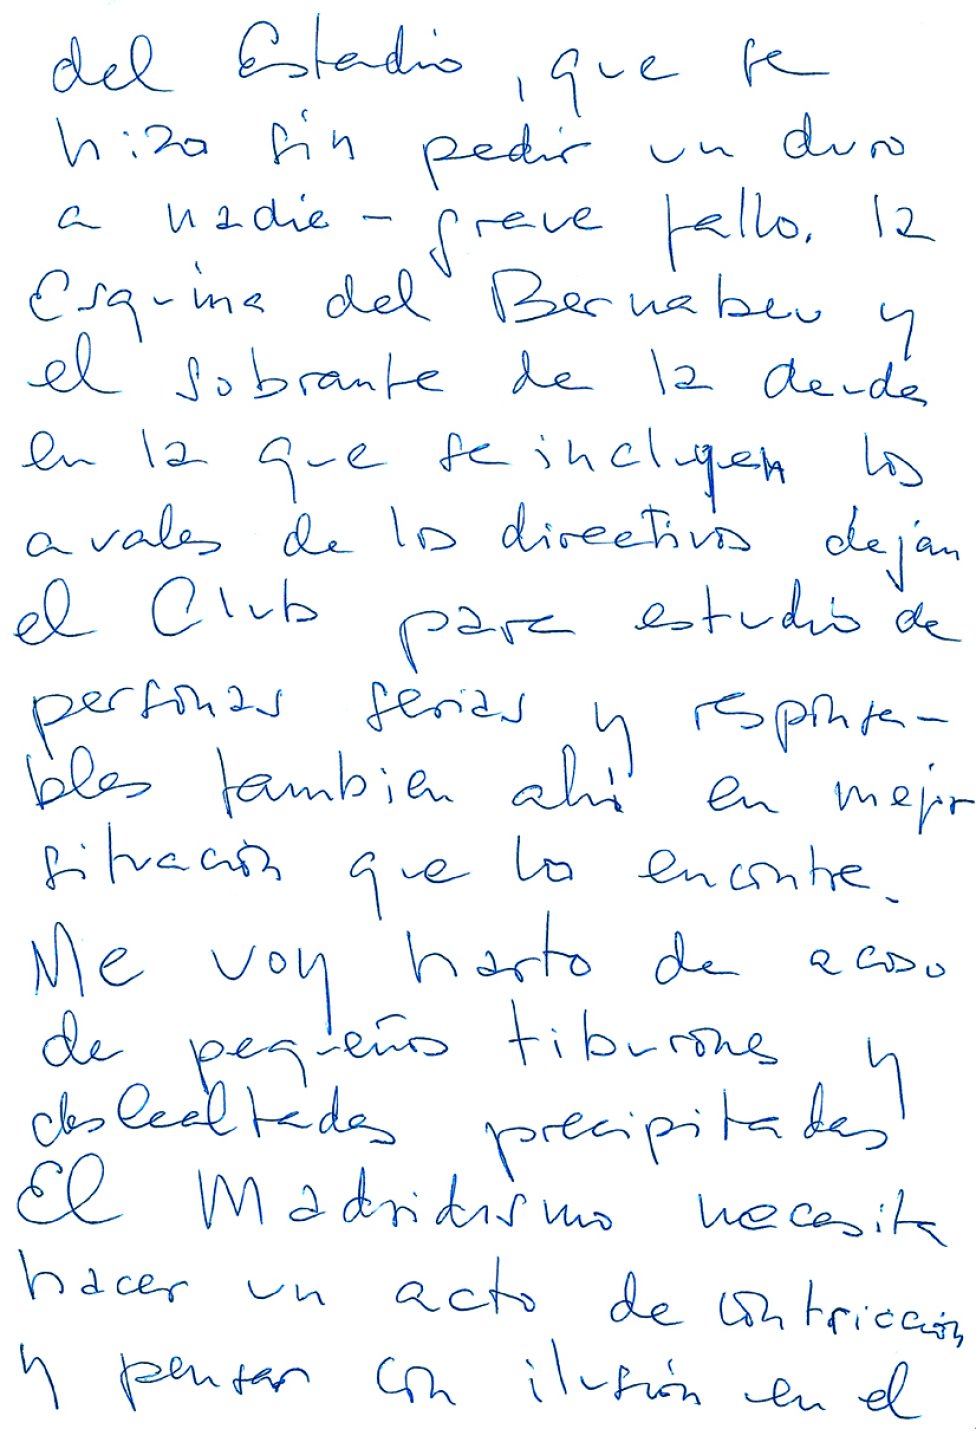 del Estadio, que se
hizo sin pedir un duro
a nadie - grave fallo. la
Esquina del Bernabeu y
el sobrante de la deuda
en la que se incluyen los
avales de los directivos dejan
el Club para estudio de
personas serias y responsa-
bles tambien ahi en mejor
situación que lo encontre.
Me voy harto de acoso
de pequeños tiburones y
deslealtades precipitadas
El Madridismo necesita
hacer un acto de contricción
y pensar con ilusión en el